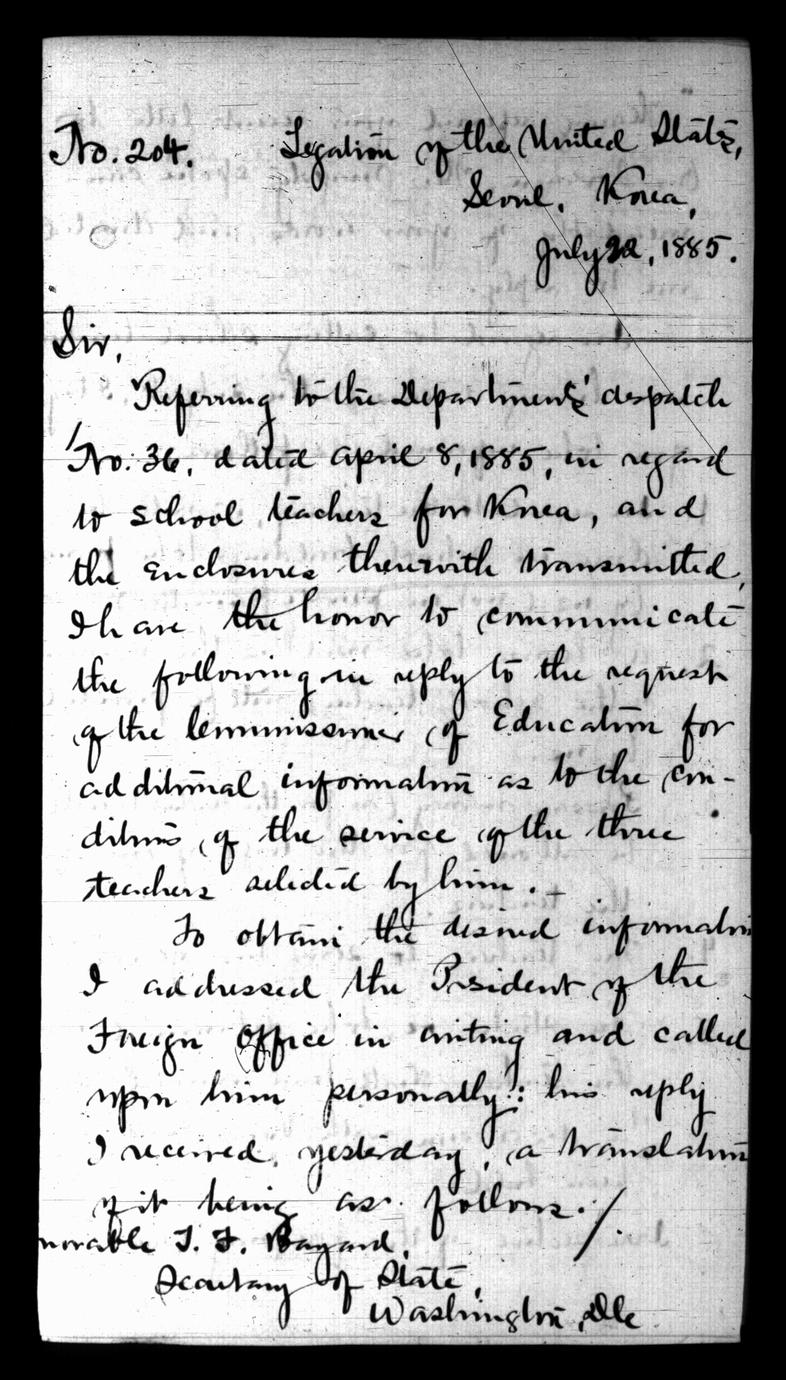 No. 204. Legation of the United States,
Seoul, Korea,
July 22, 1885.
Sir,
Referring to the Department's despatch
No. 36, dated April 8, 1885, in regard
to school teachers for Korea, and
the enclosures therewith transmitted,
I have the honor to communicate
the following in reply to the request
of the Commissioner of Education for
additional information as to the con-
ditions of the service of the three
teachers selected by him.
To obtain the desired information
I addressed the President of the
Foreign Office in writing and called
upon him personally: his reply
I received yesterday, a translation
of it being as follows./.
norable T. F. Bayard,
Secretary of State,
Washington, D.C.